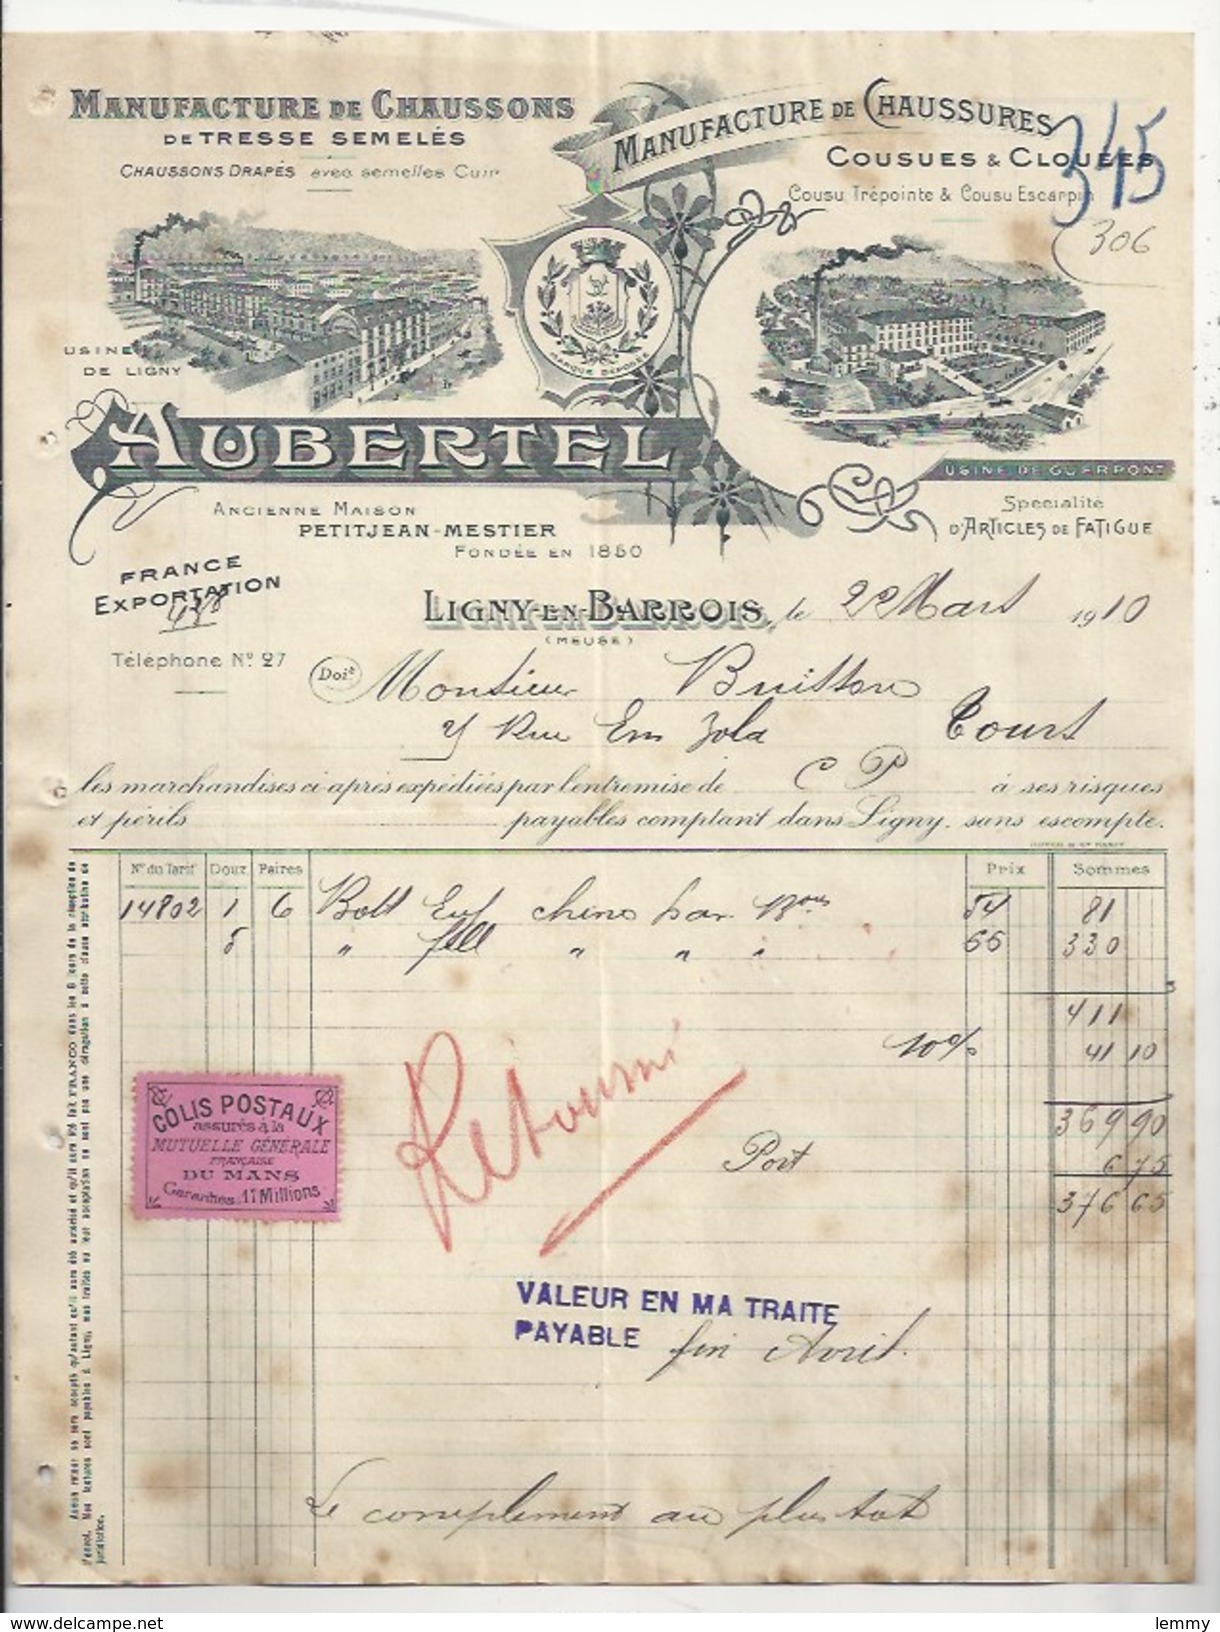 MANUFACTURE DE CHAUSSONS
DE TRESSE SEMELÉS
CHAUSSONS DRAPÉS avec semelles Cuir
MANUFACTURE DE CHAUSSURES
COUSUES & CLOUÉES
Cousu Trépointe & Cousu Escarpin
345
306
USINE
DE LIGNY
MARQUE DÉPOSÉE
AUBERTEL
USINE DE GUERPONT
ANCIENNE MAISON
PETITJEAN-MESTIER
FONDÉE EN 1850
Spécialité
D'ARTICLES DE FATIGUE
FRANCE
EXPORTATION
LIGNY-EN-BARROIS, le 22 Mars 1910
(MEUSE)
Téléphone N° 27
Doit Monsieur Buisson
Rue Em Zola Tours
les marchandises ci après expédiées par l'entremise de C P à ses risques
et périls payables comptant dans Ligny, sans escompte.
N° du Tarif Douz Paires Prix Sommes
14802 1 6 54 81
5 " " " " 66 330
411
10% 41 10
369 90
Port 6 75
376 65
COLIS POSTAUX
assurés à la
MUTUELLE GÉNÉRALE
FRANÇAISE
DU MANS
Garanties: 17 Millions
Retourné
VALEUR EN MA TRAITE
PAYABLE fin Avril.
Le complément au plus tot
lemmy